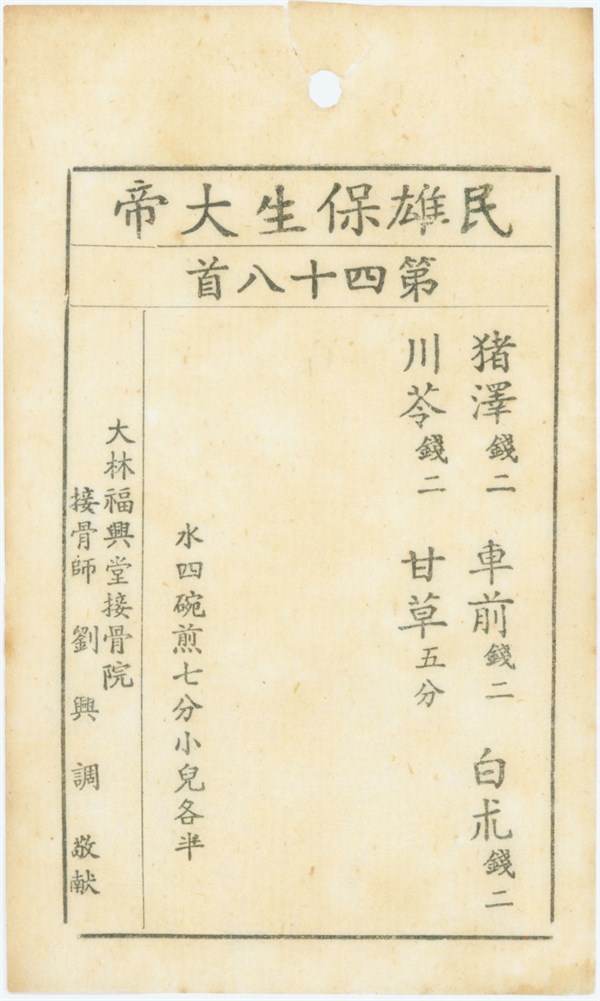 民雄保生大帝
第四十八首
猪澤錢二 車前錢二 白朮錢二
川苓錢二 甘草五分
水四碗煎七分小兒各半
大林福興堂接骨院
接骨師 劉興調 敬献